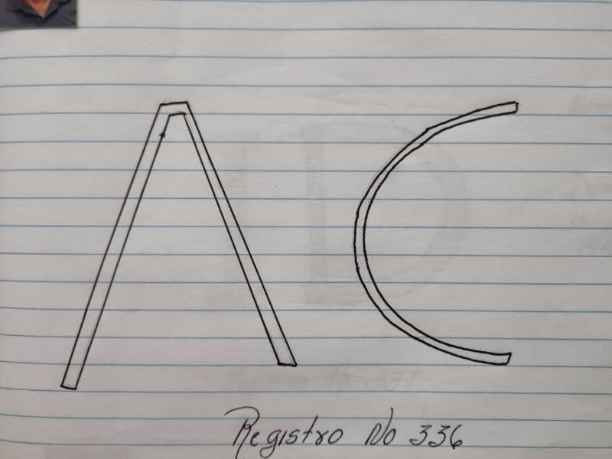 AC
Registro No 336